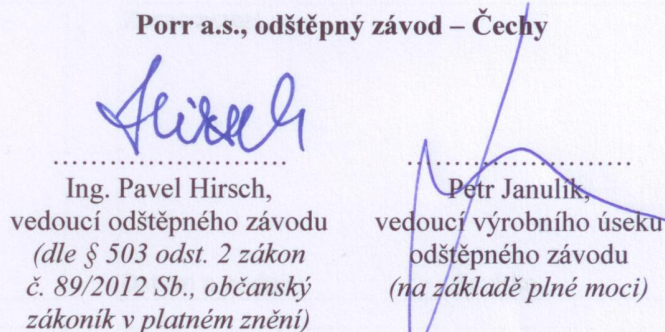 Porr a.s., odštěpný závod – Čechy
Hirsch
.................................
Ing. Pavel Hirsch,
vedoucí odštěpného závodu
(dle § 503 odst. 2 zákon
č. 89/2012 Sb., občanský
zákoník v platném znění)
.................................
Petr Janulík,
vedoucí výrobního úseku
odštěpného závodu
(na základě plné moci)